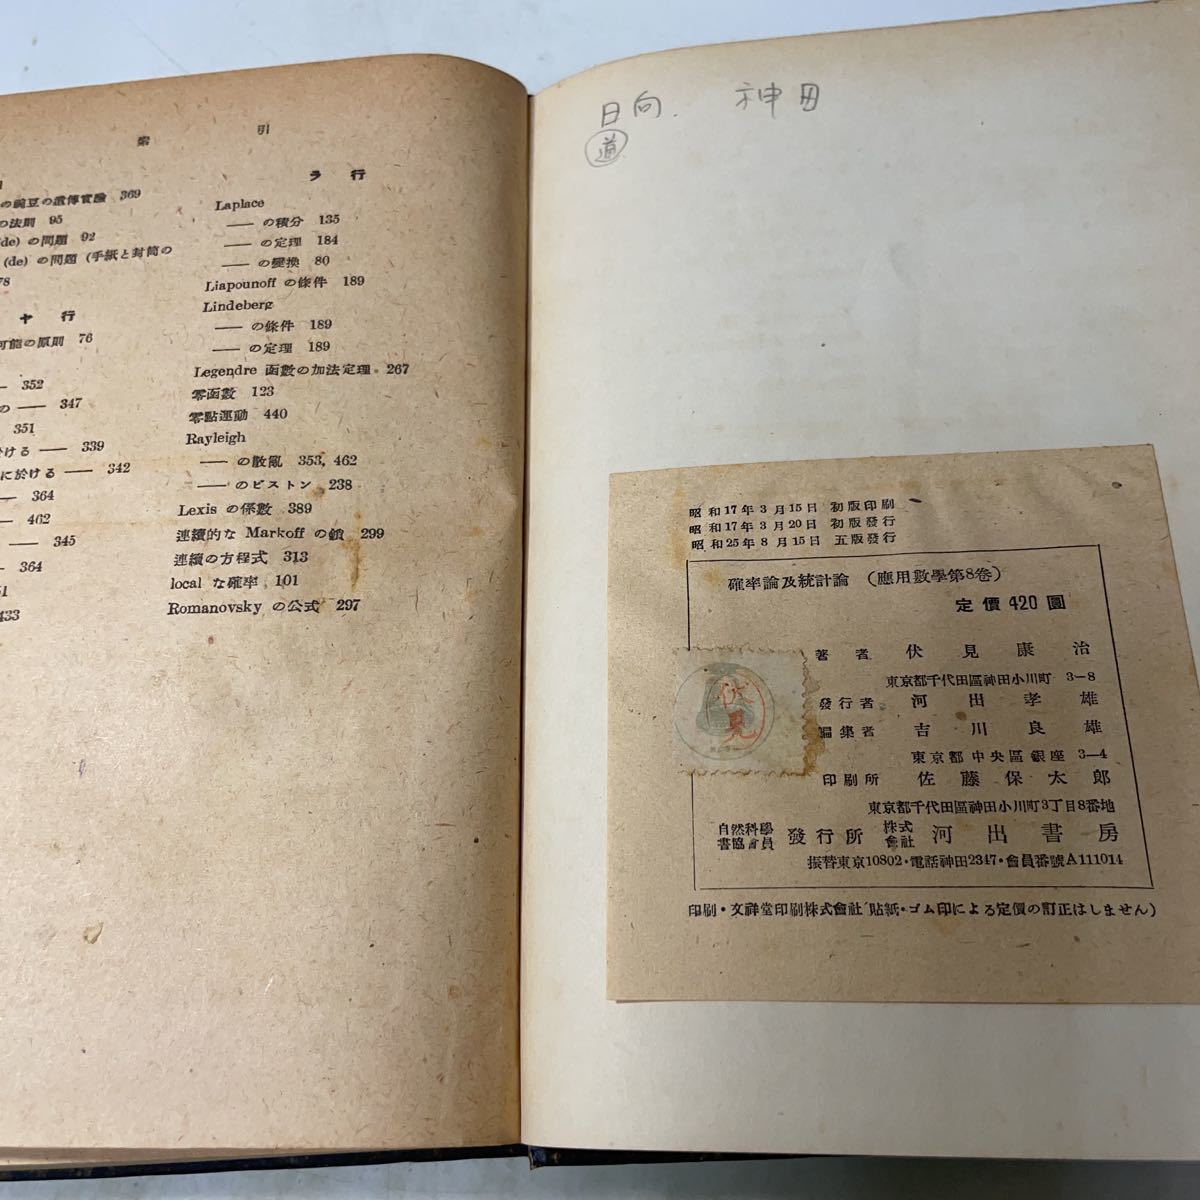 索 引
の豌豆の遺傳實驗 369
の法則 95
(de) の問題 92
(de) の問題 (手紙と封筒の
78
ヤ 行
可能の原則 76
— 352
の — 347
351
ける — 339
に於ける — 342
— 364
— 462
— 345
— 364
433
ラ 行
Laplace
— の積分 135
— の定理 184
— の變換 80
Liapounoff の條件 189
Lindeberg
— の條件 189
— の定理 189
Legendre 函數の加法定理 267
零函數 123
零點運動 440
Rayleigh
— の散亂 353, 462
— のピストン 238
Lexis の係數 389
連續的な Markoff の鎖 299
連續の方程式 313
local な確率 101
Romanovsky の公式 297
日向. 神田
道
昭和17年3月15日 初版印刷
昭和17年3月20日 初版發行
昭和25年8月15日 五版發行
確率論及統計論 (應用數學第8巻)
定價 420 圓
著者 伏見康治
東京都千代田區神田小川町 3-8
發行者 河出孝雄
編集者 吉川良雄
東京都中央區銀座 3-4
印刷所 佐藤保太郎
東京都千代田區神田小川町3丁目8番地
自然科學書協會員 發行所 株式會社 河出書房
振替東京10802・電話神田2347・會員番號A111014
印刷・文祥堂印刷株式會社 貼紙・ゴム印による定價の訂正はしません)
伏見